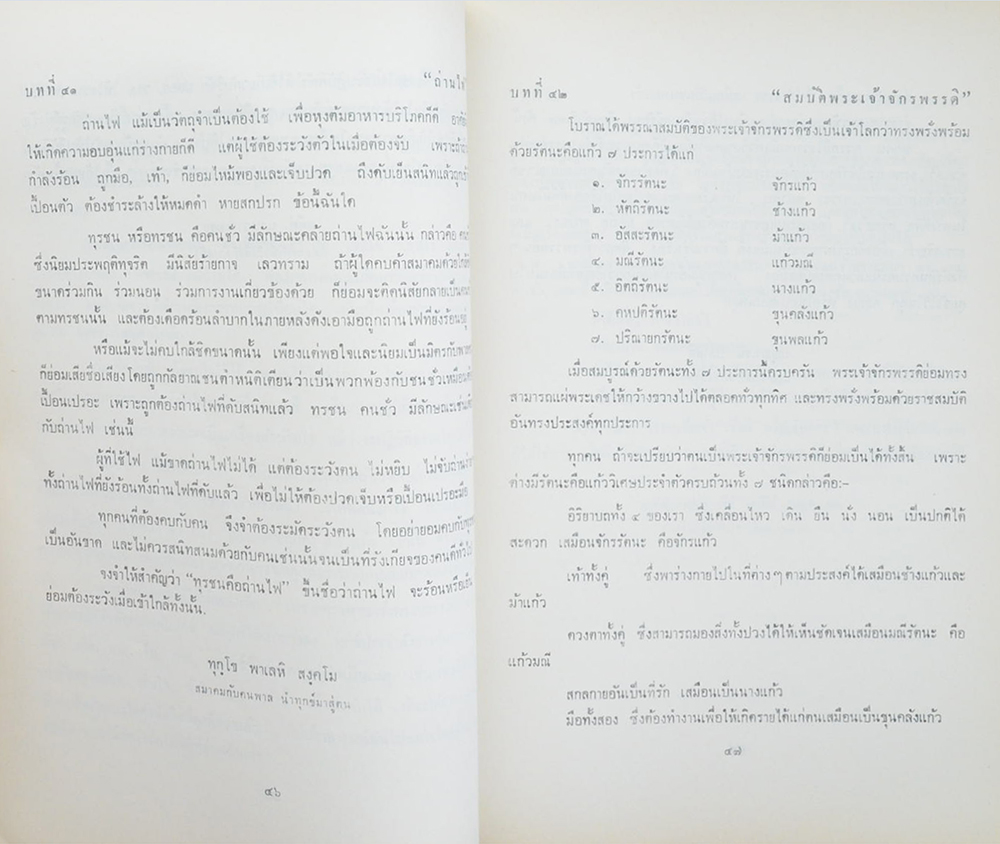 บทที่ ๔๑ “ถ่านไฟ
ถ่านไฟ แม้เป็นวัตถุจำเป็นต้องใช้ เพื่อหุงต้มอาหารบริโภคก็ดี
ให้เกิดความอบอุ่นแก่ร่างกายก็ดี แต่ผู้ใช้ต้องระวังตัวในเมื่อต้องจับ
กำลังร้อน ถูกมือ, เท้า, ก็ย่อมไหม้พองและเจ็บปวด ถึงดับเย็นสนิทแล้ว
เปื้อนตัว ต้องชำระล้างให้หมดดำ หายสกปรก ข้อนี้ฉันใด
ทุรชน หรือทรชน คือคนชั่ว มีลักษณะคล้ายถ่านไฟฉันนั้น กล่าวคือ
ซึ่งนิยมประพฤติทุจริต มีนิสัยร้ายกาจ เลวทราม ถ้าผู้ใดคบค้าสมาคมด้วย
ขนาดร่วมกิน ร่วมนอน ร่วมการงานเกี่ยวข้องด้วย ก็ย่อมจะติดนิสัยกลายเป็น
ตามทรชนนั้น และต้องเดือดร้อนลำบากในภายหลังดังเอามือถูกถ่านไฟที่ยังร้อน
หรือแม้จะไม่คบใกล้ชิดขนาดนั้น เพียงแต่พอใจและนิยมเป็นมิตรกับ
ก็ย่อมเสียชื่อเสียง โดยถูกกัลยาณชนตำหนิติเตียนว่าเป็นพวกพ้องกับชนชั่วเหมือน
เปื้อนเปรอะ เพราะถูกต้องถ่านไฟที่ดับสนิทแล้ว ทรชน คนชั่ว มีลักษณะเช่น
กับถ่านไฟ เช่นนี้
ผู้ที่ใช้ไฟ แม้ขาดถ่านไฟไม่ได้ แต่ต้องระวังตน ไม่หยิบ ไม่จับ
ทั้งถ่านไฟที่ยังร้อนทั้งถ่านไฟที่ดับแล้ว เพื่อไม่ให้ต้องปวดเจ็บหรือเปื้อนเปรอะ
ทุกคนที่ต้องคบกับคน จึงจำต้องระมัดระวังตน โดยอย่ายอมคบกับ
เป็นอันขาด และไม่ควรสนิทสนมด้วยกับคนเช่นนั้นจนเป็นที่รังเกียจของคนดี
จงจำให้สำคัญว่า “ทุรชนคือถ่านไฟ” ขึ้นชื่อว่าถ่านไฟ จะร้อนหรือเย็น
ย่อมต้องระวังเมื่อเข้าใกล้ทั้งนั้น.
ทุกฺโข พาเลหิ สงฺคโม
สมาคมกับคนพาล นำทุกข์มาสู่ตน
๔๖
บทที่ ๔๒ “สมบัติพระเจ้าจักรพรรดิ”
โบราณได้พรรณาสมบัติของพระเจ้าจักรพรรดิซึ่งเป็นเจ้าโลกว่าทรงพรั่งพร้อม
ด้วยรัตนะคือแก้ว ๗ ประการได้แก่
๑. จักรรัตนะ จักรแก้ว
๒. หัตถิรัตนะ ช้างแก้ว
๓. อัสสะรัตนะ ม้าแก้ว
๔. มณีรัตนะ แก้วมณี
๕. อิตถีรัตนะ นางแก้ว
๖. คหปติรัตนะ ขุนคลังแก้ว
๗. ปริณายกรัตนะ ขุนพลแก้ว
เมื่อสมบูรณ์ด้วยรัตนะทั้ง ๗ ประการนี้ครบครัน พระเจ้าจักรพรรดิย่อมทรง
สามารถแผ่พระเดชให้กว้างขวางไปได้ตลอดทั่วทุกทิศ และทรงพรั่งพร้อมด้วยราชสมบัติ
อันทรงประสงค์ทุกประการ
ทุกคน ถ้าจะเปรียบว่าตนเป็นพระเจ้าจักรพรรดิก็ย่อมเป็นได้ทั้งสิ้น เพราะ
ต่างมีรัตนะคือแก้ววิเศษประจำตัวครบถ้วนทั้ง ๗ ชนิดกล่าวคือ:-
อิริยาบถทั้ง ๔ ของเรา ซึ่งเคลื่อนไหว เดิน ยืน นั่ง นอน เป็นปกติได้
สะดวก เสมือนจักรรัตนะ คือจักรแก้ว
เท้าทั้งคู่ ซึ่งพาร่างกายไปในที่ต่าง ๆ ตามประสงค์ได้เสมือนช้างแก้วและ
ม้าแก้ว
ดวงตาทั้งคู่ ซึ่งสามารถมองสิ่งทั้งปวงได้ให้เห็นชัดเจนเสมือนมณีรัตนะ คือ
แก้วมณี
สกลกายอันเป็นที่รัก เสมือนเป็นนางแก้ว
มือทั้งสอง ซึ่งต้องทำงานเพื่อให้เกิดรายได้แก่ตนเสมือนเป็นขุนคลังแก้ว
๔๗